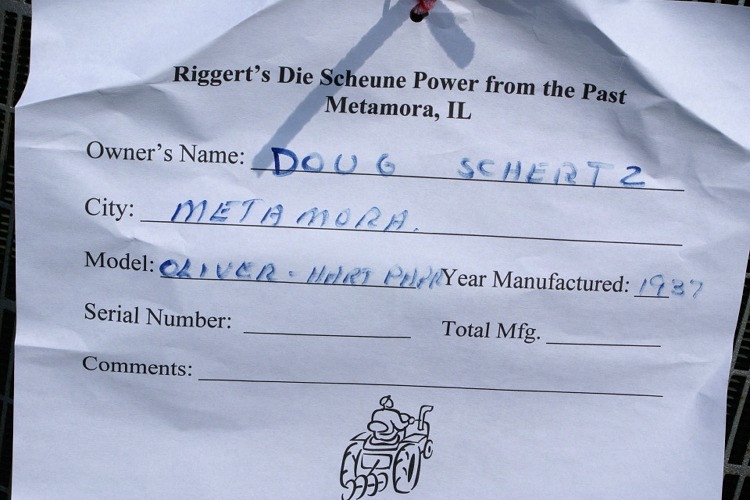 Riggert's Die Scheune Power from the Past
Metamora, IL
Owner's Name: DOUG SCHERTZ
City: METAMORA.
Model: OLIVER - HART PARR Year Manufactured: 1937
Serial Number: Total Mfg.
Comments: